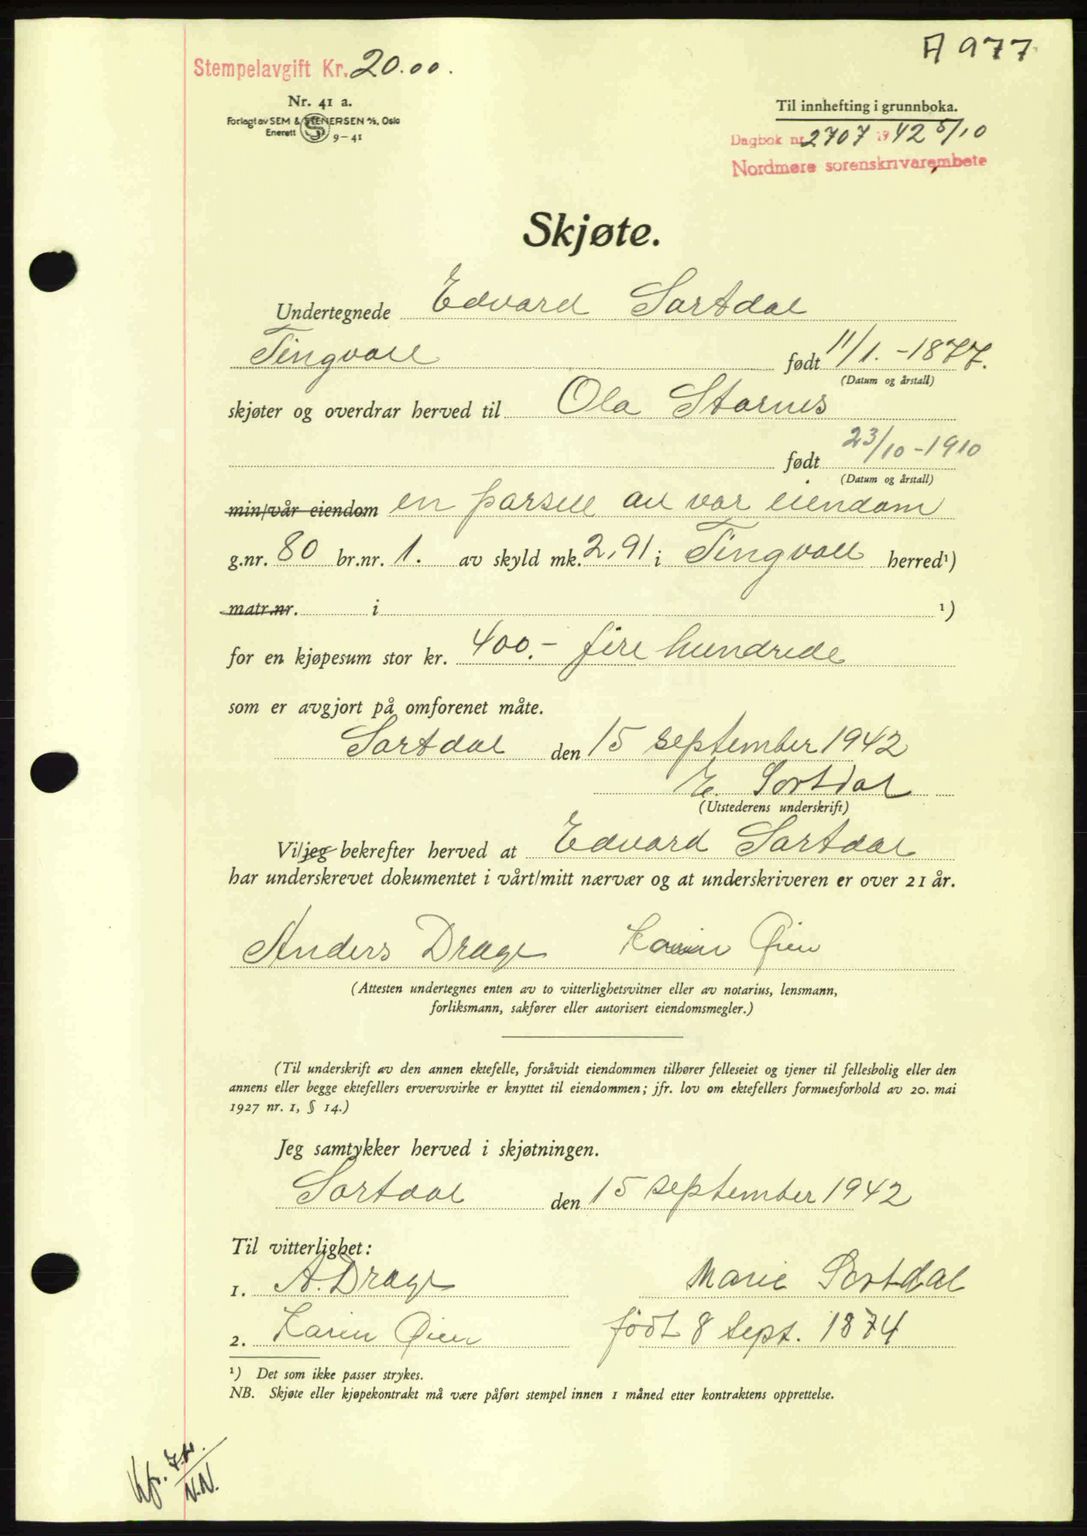 A 977
Stempelavgift Kr. 20.00.
Nr. 41 a.
Forlagt av SEM & STENERSEN A/S, Oslo
Enerett 9-41
Til innhefting i grunnboka.
Dagbok nr. 2707 1942 5/10
Nordmøre sorenskriverembete
Skjøte.
Undertegnede Edvard Sartdal
Tingvoll født 11/1.-1877.
(Datum og årstall)
skjøter og overdrar herved til Ola Starnes
født 23/10-1910
(Datum og årstall)
min/vår eiendom en parsell av vår eiendom
g.nr. 80 br.nr. 1. av skyld mk. 2,91 i Tingvoll herred¹)
matr.nr. i ¹)
for en kjøpesum stor kr. 400.- fire hundrede
som er avgjort på omforenet måte.
Sartdal den 15 september 1942
E. Sortdal
(Utstederens underskrift)
Vi/jeg bekrefter herved at Edvard Sartdal
har underskrevet dokumentet i vårt/mitt nærvær og at underskriveren er over 21 år.
Anders Drage Karin Øien
(Attesten undertegnes enten av to vitterlighetsvitner eller av notarius, lensmann,
forliksmann, sakfører eller autorisert eiendomsmegler.)
(Til underskrift av den annen ektefelle, forsåvidt eiendommen tilhører felleseiet og tjener til fellesbolig eller den
annens eller begge ektefellers ervervsvirke er knyttet til eiendommen; jfr. lov om ektefellers formuesforhold av 20. mai
1927 nr. 1, § 14.)
Jeg samtykker herved i skjøtningen.
Sartdal den 15 september 1942
Til vitterlighet:
1. A. Drage Marie Sortdal
2. Karin Øien født 8 Sept. 1874
¹) Det som ikke passer strykes.
NB. Skjøte eller kjøpekontrakt må være påført stempel innen 1 måned etter kontraktens opprettelse.
N.N.